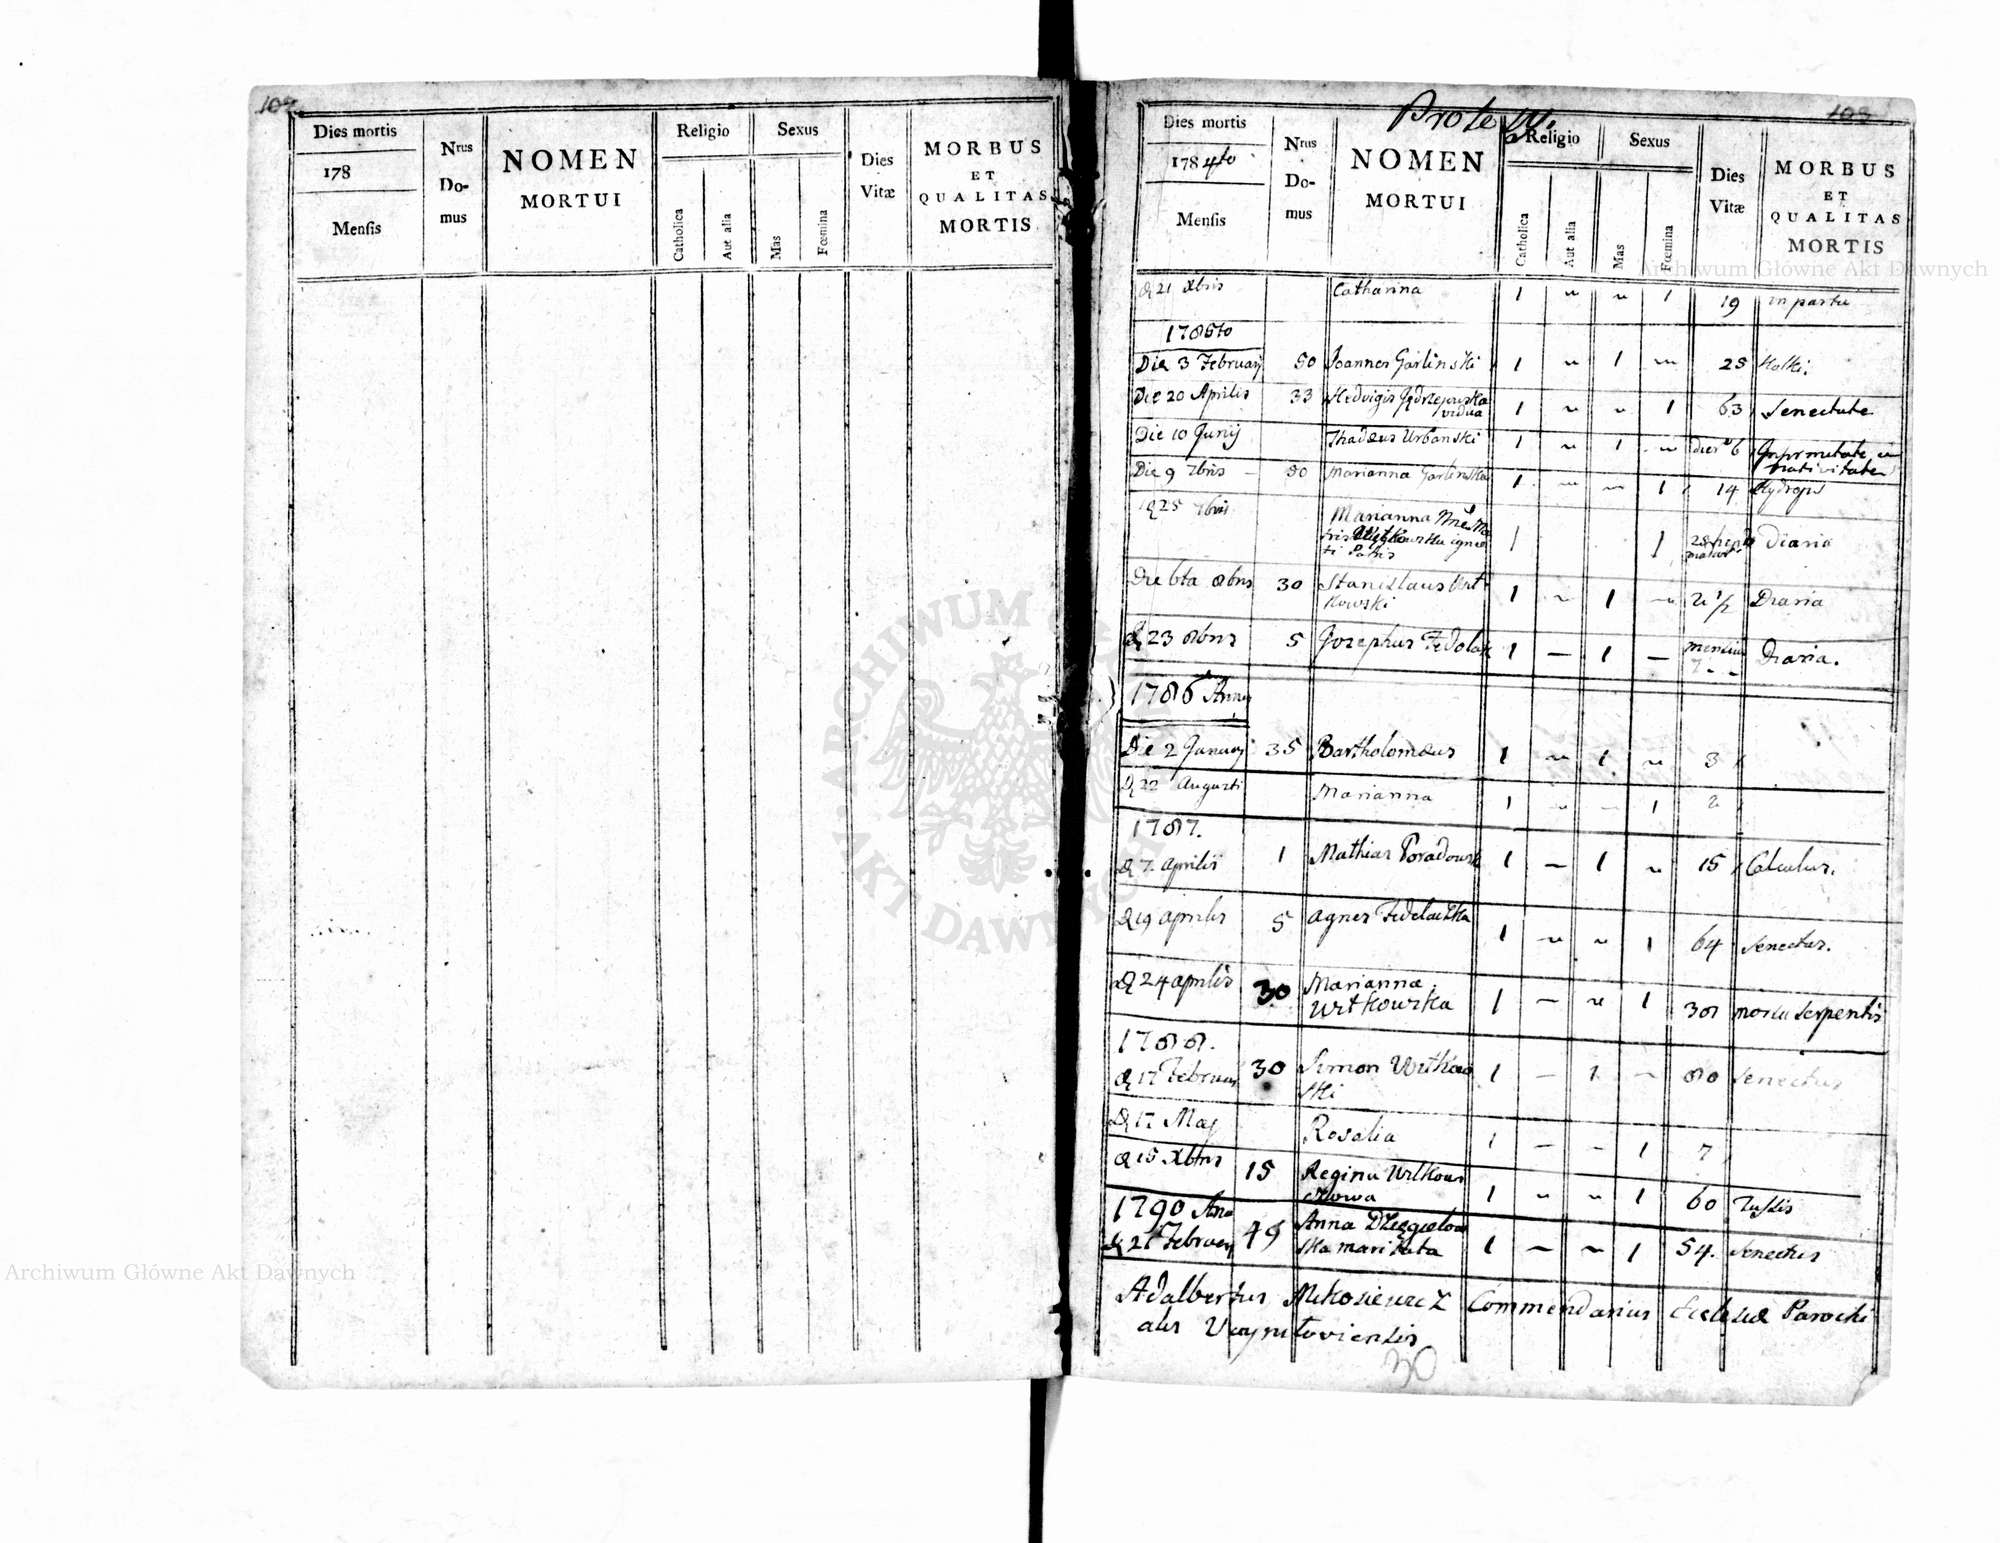 102
Dies mortis
178
Mensis
Nrus
Do-
mus
NOMEN
MORTUI
Religio
Catholica
Aut alia
Sexus
Mas
Fœmina
Dies
Vitæ
MORBUS
ET
QUALITAS
MORTIS
103
Dies mortis
1784to
Mensis
Nrus
Do-
mus
NOMEN
MORTUI
Religio
Catholica
Aut alia
Sexus
Mas
Fœmina
Dies
Vitæ
MORBUS
ET
QUALITAS
MORTIS
21 Xbris Catharina 1 1 19 in partu
1785to
Die 3 February 50 Joannes Garlinski 1 1 25 Kolki.
Die 20 Aprilis 33 Hedvigis
vidua 1 1 63 Senectute
Die 10 Junij Thadæus Urbanski 1 1 dier 6
nativitate
Die 9 7bris 50 Marianna Garlinska 1 1 14 Hydrops
25 7bris Marianna
Patris 1 1 Diaria
Die 6ta 8bris 30 Stanislaus Wit-
kowski 1 1 2 1/2 Diaria
23 8bris 5 Josephus Fedolak 1 — 1 — mensium
7 Diaria.
1786 Anno
Die 2 January 35 Bartholomæus 1 1 3
22 Augusti Marianna 1 1 2
1787.
7 Aprilis 1 Mathias Poradowsk 1 — 1 15 Calculus.
19 aprilis 5 Agnes Fedelaczka 1 1 64 Senectus.
24 aprilis 30 Marianna
Witkowska 1 — 1 38 morsu Serpentis
1788.
17 February 30 Simon Witkow
ski 1 — 1 80 Senectus
17 Maj Rosalia 1 — 1 7
15 Xbris 15 Regina Witkows
kowa 1 1 60 Tussis
1790 Ano
21 February 49 Anna
ska maritata 1 1 54. Senectus
Adalbertus Mikosiewicz Commendarius Ecclesiæ Parochi
alis
30
Archiwum Główne Akt Dawnych
Archiwum Główne Akt Dawnych
ARCHIWUM GŁÓWNE AKT DAWNYCH